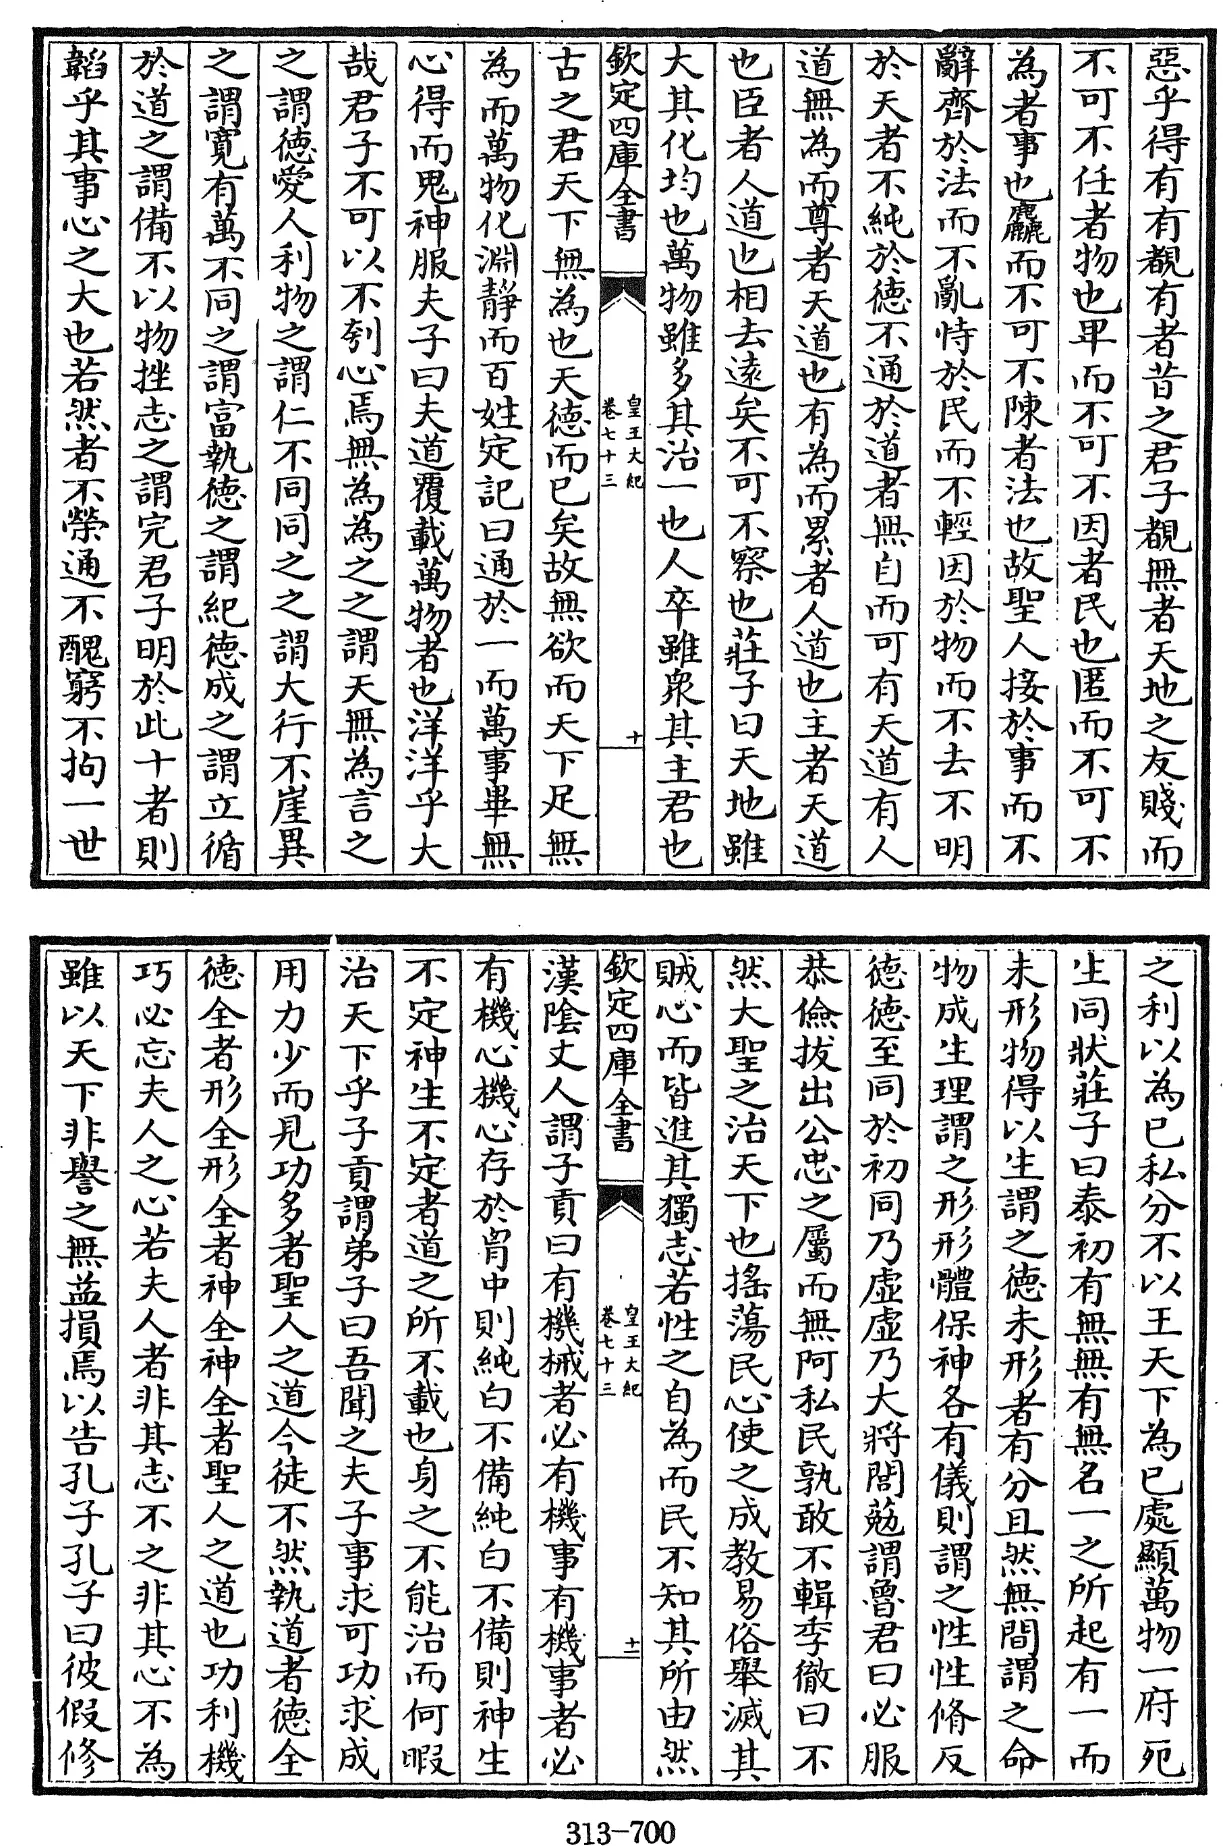 惡乎得有有覩有者昔之君子覩無者天地之友賤而
不可不任者物也卑而不可不因者民也匿而不可不
為者事也麤而不可不陳者法也故聖人接於事而不
辭齊於法而不亂恃於民而不輕因於物而不去不明
於天者不純於徳不通於道者無自而可有天道有人
道無為而尊者天道也有為而累者人道也主者天道
也臣者人道也相去逺矣不可不察也莊子曰天地雖
大其化均也萬物雖多其治一也人卒雖衆其主君也
欽定四庫全書
皇王大紀
卷七十三
十
古之君天下無為也天徳而已矣故無欲而天下足無
為而萬物化淵靜而百姓定記曰通於一而萬事畢無
心得而鬼神服夫子曰夫道覆載萬物者也洋洋乎大
哉君子不可以不刳心焉無為為之之謂天無為言之
之謂徳愛人利物之謂仁不同同之之謂大行不崖異
之謂寛有萬不同之謂富執徳之謂紀徳成之謂立循
於道之謂備不以物挫志之謂完君子明於此十者則
韜乎其事心之大也若然者不榮通不醜窮不拘一世
之利以為已私分不以王天下為已處顯萬物一府死
生同狀莊子曰泰初有無無有無名一之所起有一而
未形物得以生謂之徳未形者有分且然無間謂之命
物成生理謂之形形體保神各有儀則謂之性性脩反
徳徳至同於初同乃虛虛乃大將閭葂謂魯君曰必服
恭儉拔出公忠之屬而無阿私民孰敢不輯季徹曰不
然大聖之治天下也搖蕩民心使之成教易俗舉滅其
賊心而皆進其獨志若性之自為而民不知其所由然
欽定四庫全書
皇王大紀
卷七十三
十一
漢陰丈人謂子貢曰有機械者必有機事有機事者必
有機心機心存於胷中則純白不備純白不備則神生
不定神生不定者道之所不載也身之不能治而何暇
治天下乎子貢謂弟子曰吾聞之夫子事求可功求成
用力少而見功多者聖人之道今徒不然執道者徳全
徳全者形全形全者神全神全者聖人之道也功利機
巧必忘夫人之心若夫人者非其志不之非其心不為
雖以天下非譽之無益損焉以告孔子孔子曰彼假修
313-700